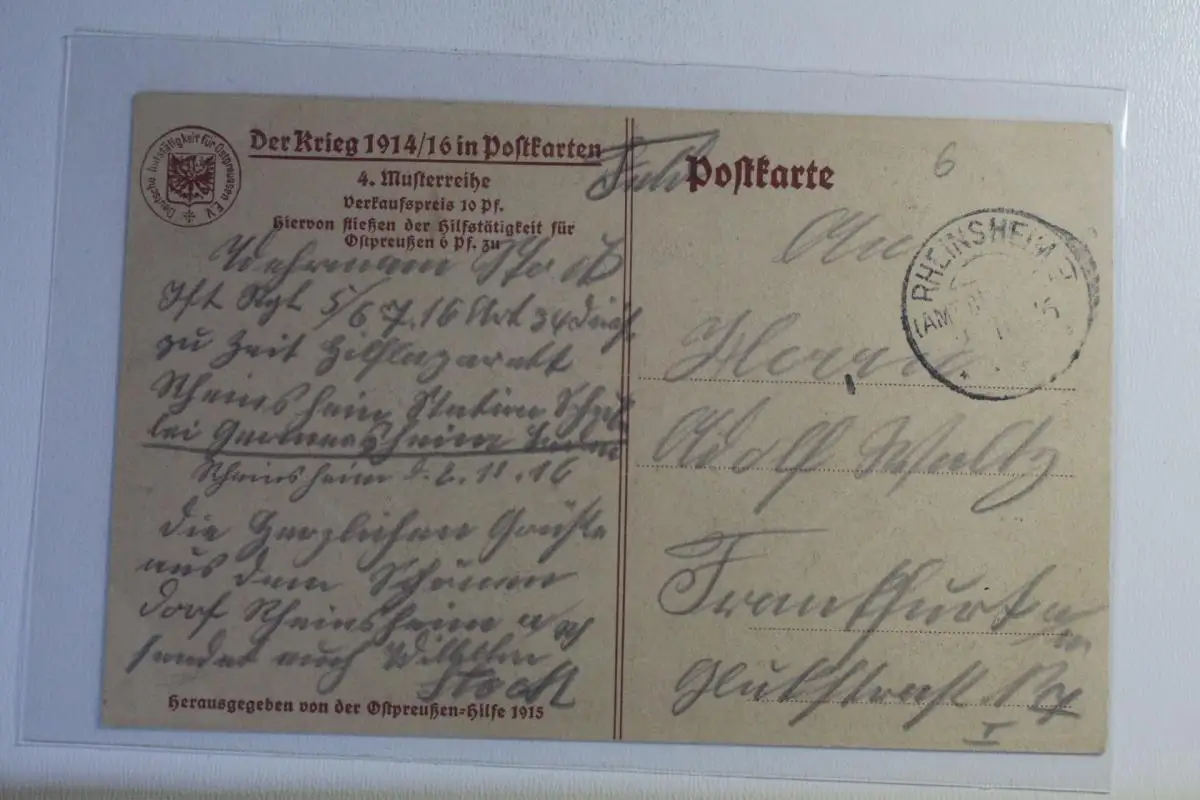 Deutsche Hilfstätigkeit für Ostpreussen E.V.
Der Krieg 1914/16 in Postkarten
4. Musterreihe
Verkaufspreis 10 Pf.
Hiervon fließen der Hilfstätigkeit für
Ostpreußen 6 Pf. zu
Wehrmann
Rgt 5/6 7. 16
zu Zeit Hilflazarett
Rheinsheim Station
bei Germersheim Baden
Rheinsheim d. 2. 11. 16
Die Herzlichen Grüße
aus dem Schönen
dorf Rheinsheim a
sendet euch Wilhelm
Stock
Herausgegeben von der Ostpreußen-Hilfe 1915
Postkarte
6
RHEINSHEIM
An
Herrn
Adolf Waltz
Frankfurt a
m
Glukstrasse
I